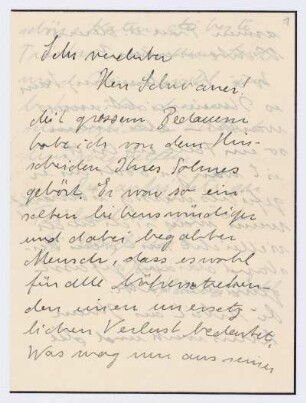 Sehr verehrter
Herr Schwaner!
Mit grossem Bedauern
habe ich von dem Hin-
scheiden Ihres Sohnes
gehört. Er war so ein
selten liebenswürdiger
und dabei begabter
Mensch, dass es wohl
für alle Höherstreben-
den einen unersetz-
lichen Verlust bedeutet.
Was mag nun aus seiner